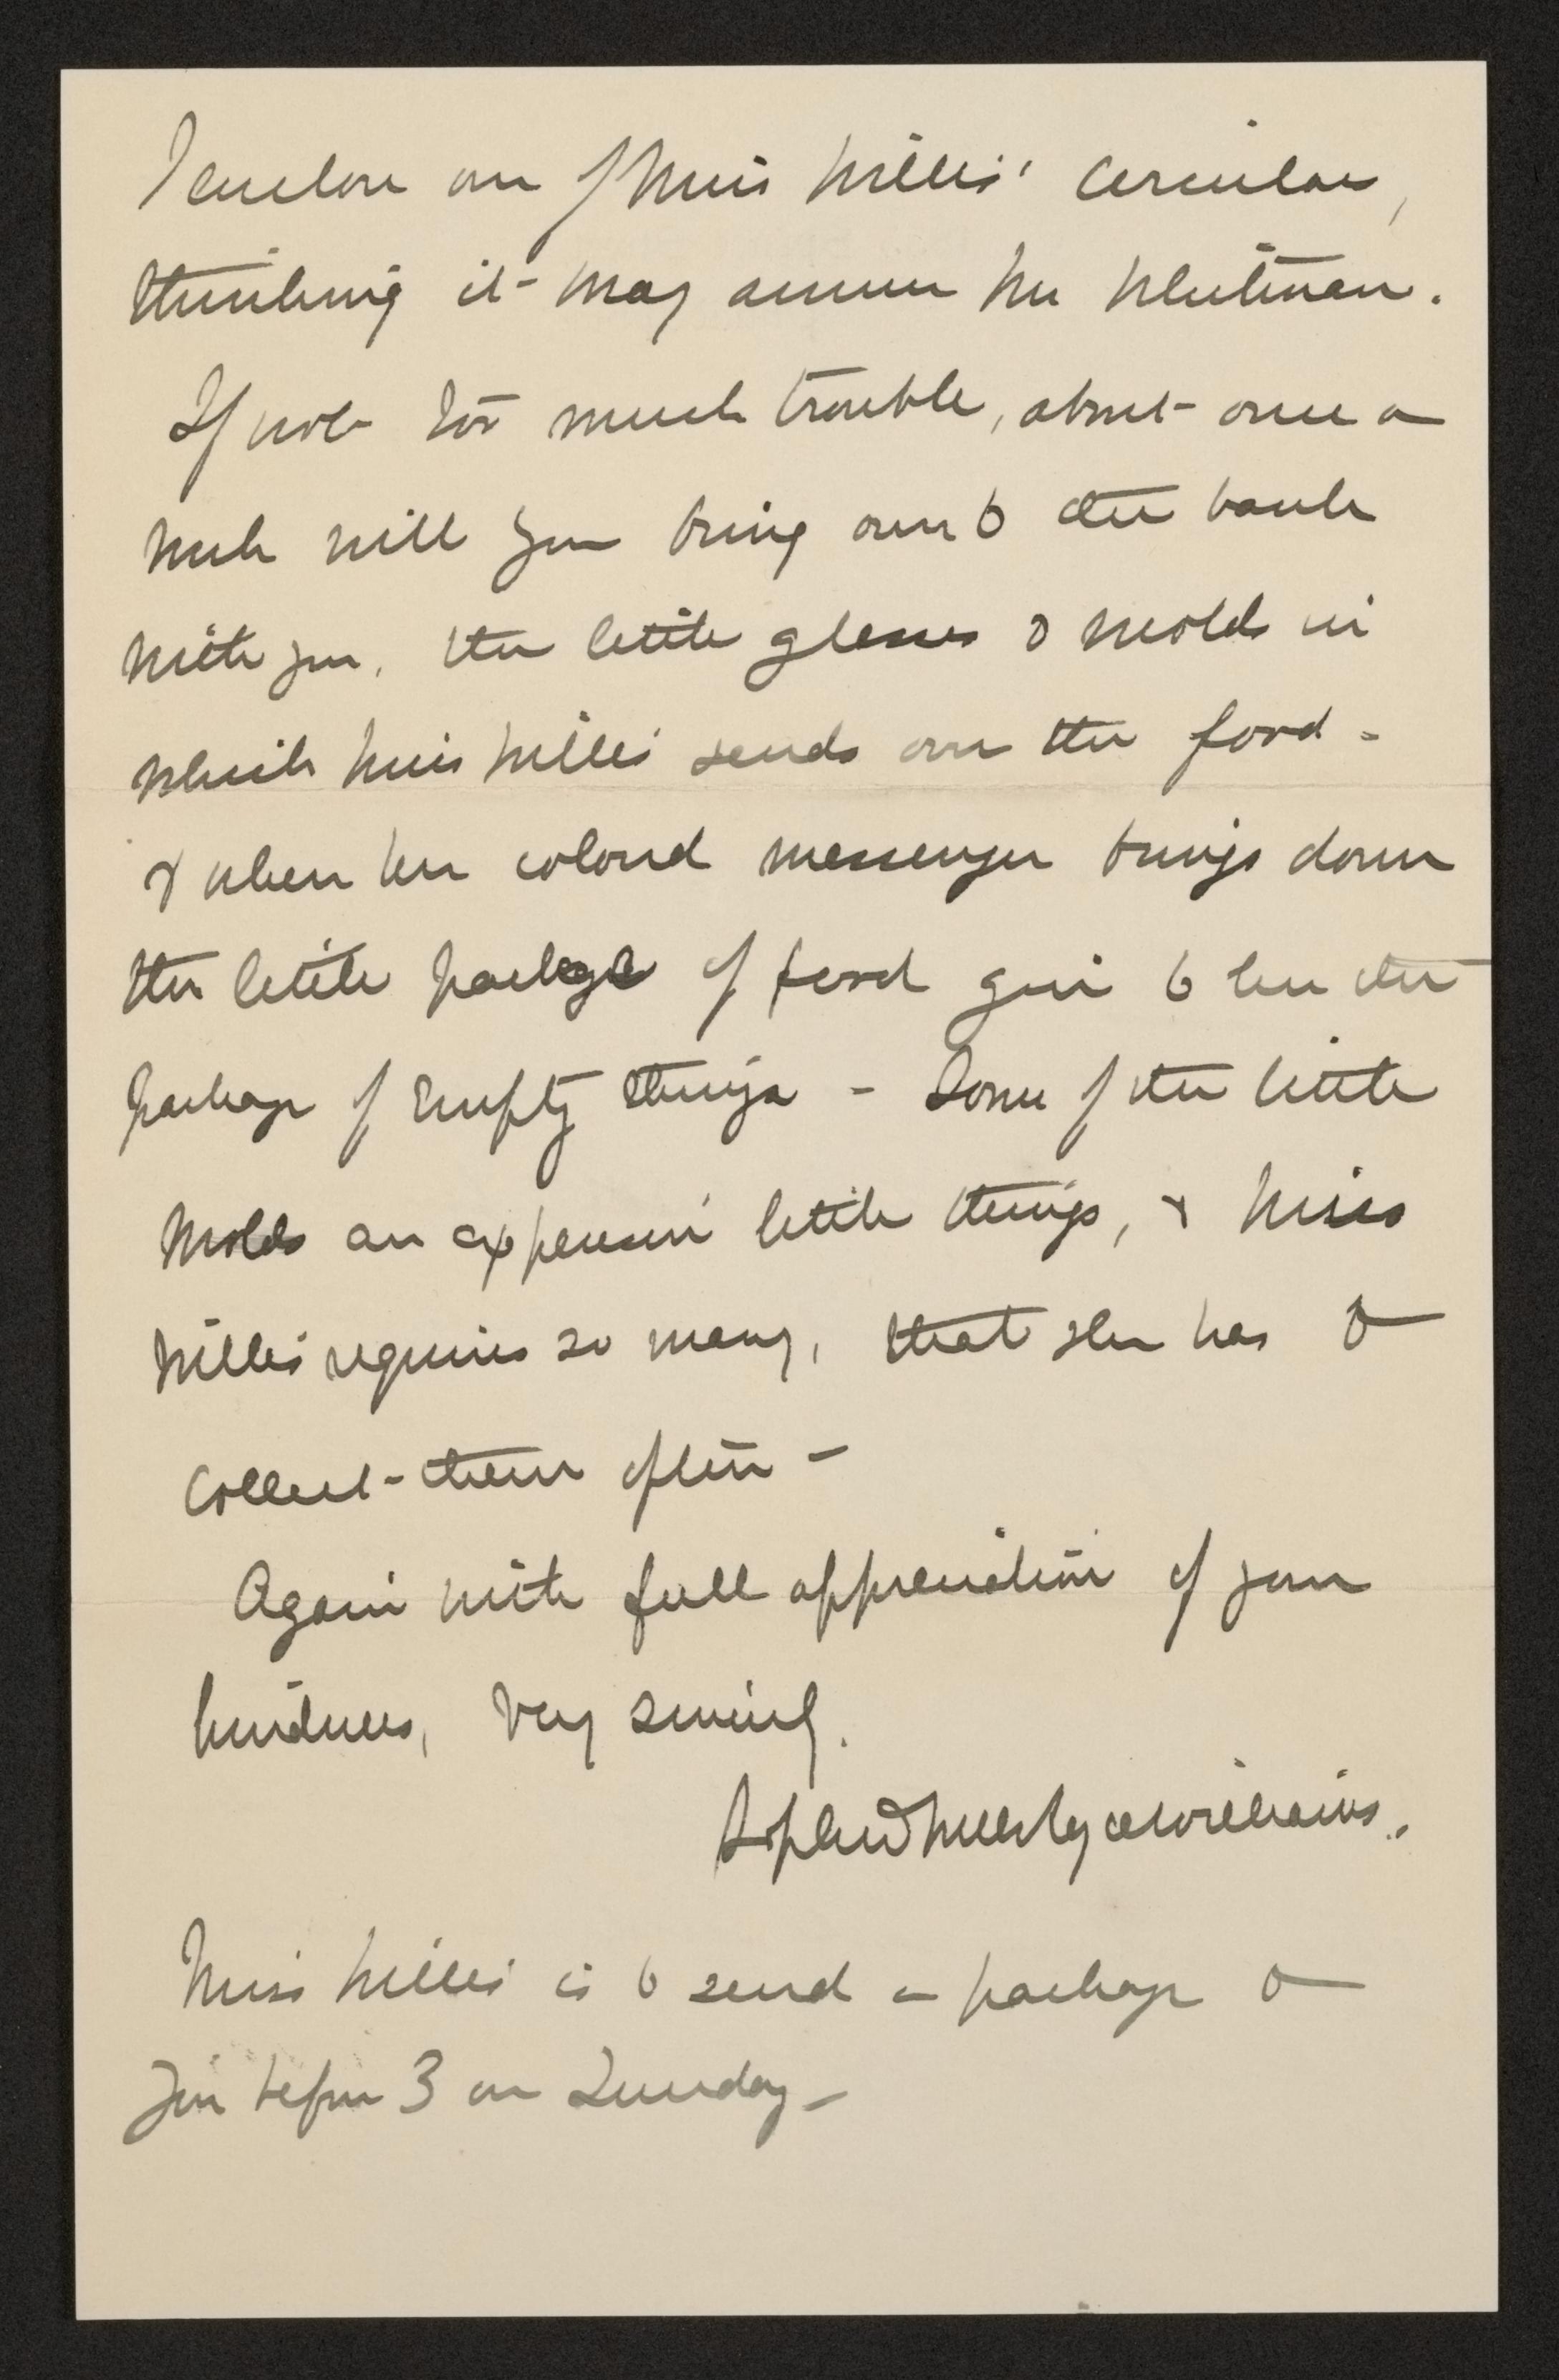 I enclose one of Miss Willis' circulars,
thinking it may amuse Mr Whitman.
If not too much trouble, about once a
week will you bring over to the bank
with you, the little glasses & molds in
which Miss Willis sends over the food -
& when her colored messenger brings down
the little package of food give to her the
package of empty things - Some of the little
molds are expensive little things, & Miss
Willis requires so many, that she has to
collect them often -
Again with full appreciation of your
kindness, very sincerely.
Williams.
Miss Willis is to send a package to
you before 3 on Sunday -